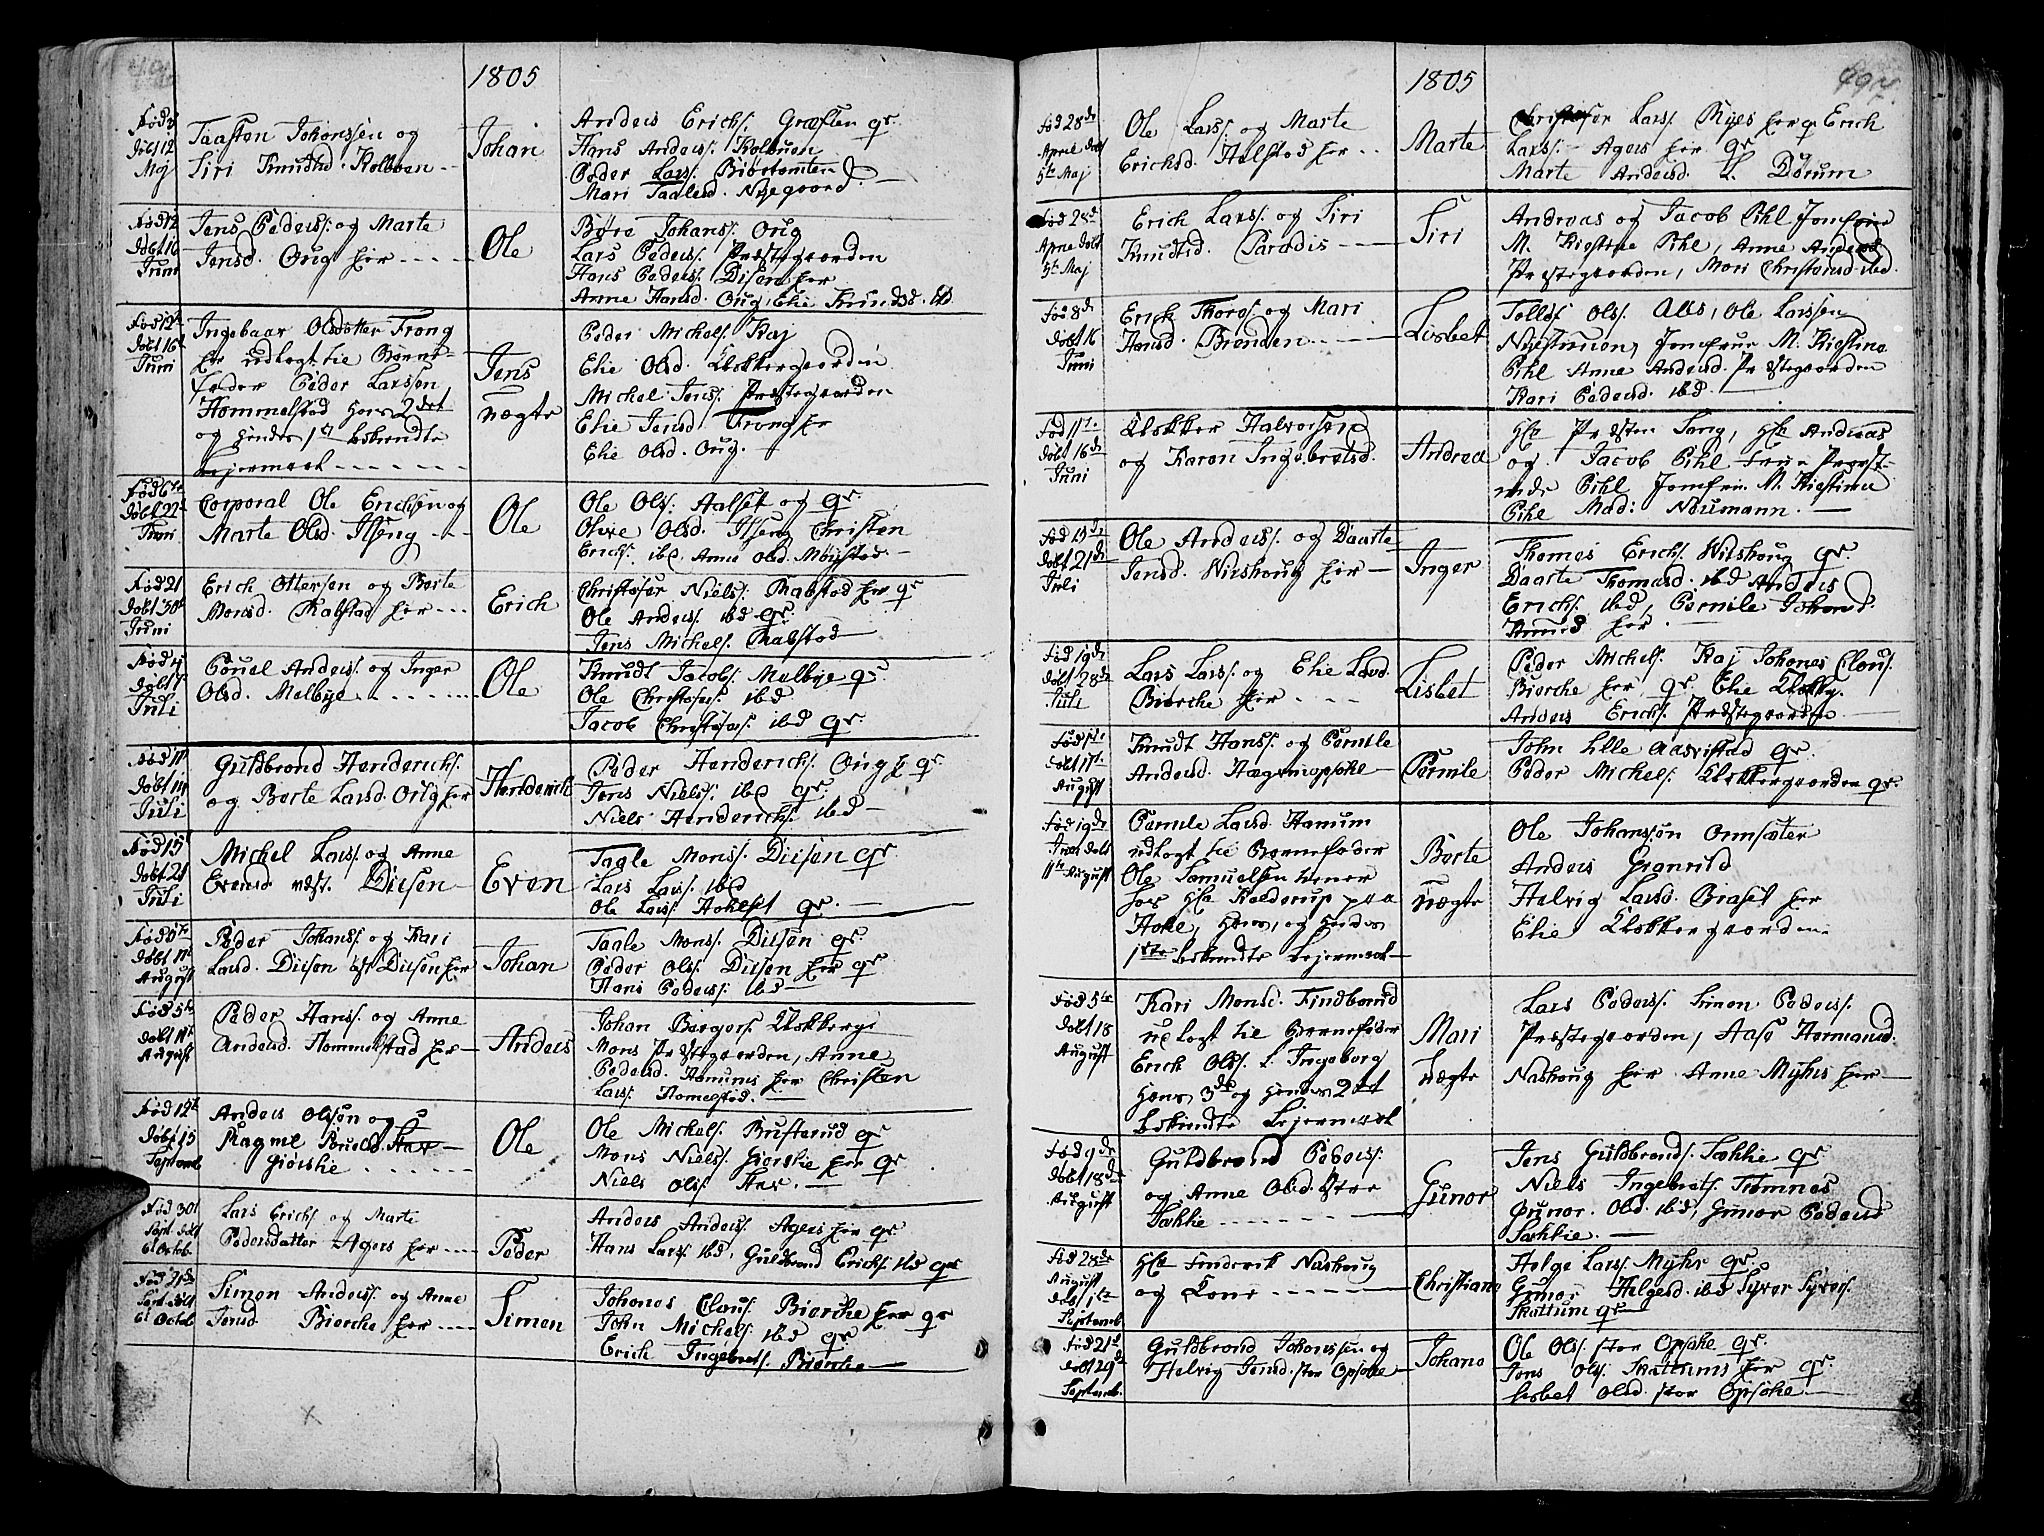 1805
Fød 8
Døbt 12
Maj
Taasten Johanssen og
Siri Knudsd. Kolboen
Johan
Anders Erichs. Græsten qr
Hans Anders. Kolbuen
Peder Lars. Biørtomten
Mari Taalesd. Nyegaard.
Fød 12
Døbt 16
Juni
Jens Peders. og Marte
Jensd. Oug her
Ole
Børe Johans. Oug
Lars Peders. Præstegaarden
Hans Peders. Disen her
Anne Hansd. Oug, Elie Knudsd. ibd
Fød 12te
Døbt 16
Juni
Ingebaar Olsdotter Frong
her udlagt til Børne-
fader Peder Larssen
Hommelstad hans 2det
og hendes 1ste bekiendte
Lejermaal
Jens
uægte
Peder Michels. Kaj
Elie Olsd. Klokkergaarden
Michel Jens. Præstegaarden
Elie Jensd Frong her
Elie Olsd. Oug.
Fød 6te
Døbt 22de
Juni
Corporal Ole Erichsen og
Marte Olsd. Ilseng
Ole
Ole Ols. Aalset og qr
Olive Olsd. Ilseng Christen
Erichs. ibd. Anne Olsd. Møystad
Fød 21
Døbt 30te
Juni
Erich Ottersen og Berte
Monsd. Rabstad her
Erich
Christofer Niels. Rabstad her qr
Ole Anders. ibd qr.
Jens Michels. Rabstad
Fød 4
Døbt 7
Juli
Pouel Anders. og Inger
Olsd. Melbye
Ole
Knudt Jacobs. Melbye qr.
Ole Christofers. ibd
Jacob Christofers. ibd qr.
Fød 11
Døbt 14
Juli
Guldbrand Henderichs.
og Berte Larsd. Oug her
Henderich
Peder Henderichs. Oug qr
Jens Niels. ibd qr.
Niels Henderichs. ibd
Fød 15
Døbt 21
Juli
Michel Lars. og Anne
Evensd. Disen
Even
Taale Mons. Diisen qr.
Lars Lars. ibd
Ole Lars. qr.
Døbt 11te
August
Peder Johans. og Kari
Larsd. Diisen Diisen her
Johan
Taale Mons. Diisen qr.
Peder Ols. Diisen her qr
Hans Peders. ibd
Fød 5te
Døbt 11te
August
Peder Hans. og Anne
Andersd. Hommelstad her
Anders
Johan Børgers. Klokberge
Mons Præstegaarden, Anne
Pedersd. Hanums her Christen
Lars. Homelstad.
Fød 12te
Døbt 15
Septemb
Anders Olsen og
Ragnil Pouelsd.
Giørslie
Ole
Ole Michels. Busterud qr
Mons Niels. Giørslie her qr
Niels Ols.
Fød 30t
Sept. døbt
6t Octob.
Lars Erichs og Marte
Pedersdatter Ager her
Peder
Anders Anders. Ager her qr
Hans Lars. ibd. Guldbrand Erichs. ibd qr
Fød 21de
Sept. døbt
6t Octob
Simon Anders. og Anne
Jensd Bierche her
Simen
Johanes Claus. Bierche her qr
John Michels. ibd qr
Erich Ingebrets. Bierche
1805
497.
Fød 28de
April døbt
5te Maj
Ole Lars. og Marte
Erichsd. Halstad her
Marte
Christofer Lars. Ryes her qr Erich
Lars. Ager her qr.
Marte Andersd. L. Dørum
Fød 28d
Apriil døbt
5te Maj
Erich Lars. og Siri
Knudtsd. Paradis
Siri
Andreas og Jacob Pihl Jomfrue
M. Kiestine Pihl, Anne Andersd
Præstegaarden, Mari Christensd ibd.
Fød 8de
Døbt 16
Juni
Erick Thors. og Mari
Hansd. Brenden
Lisbet
Tollef Ols. Alis, Ole Larssen
Nyestuen, Jomfrue M. Kiestine
Pihl Anne Andersd. Præstegaarden
Kari Pedersd. ibd.
Fød 11te
Døbt 16de
Juni
Klokker Halvorsen
og Karen Ingebretsd.
Andrea
Hr Præsten Lang, Hr. Andreas
og Jacob Pihl Frue Præst-
inde Pihl Jomfru. M. Kiestine
Pihl Mad: Neumann.
Fød 13de
Døbt 21de
Juli
Ole Anders. og Daarte
Jensd. Wieshoug her
Inger
Thomes Erichs. Wieshoug qr
Daarte Thomasd. ibd Anders
Erichs. ibd, Pernile Johansd.
her.
Fød 19de
Døbt 28de
Juli
Lars Lars. og Elie Larsd
Bierche her
Lisbet
Peder Michels. Kaj Johanes Claus.
Bierche her, qr. Elie Klokkg.
Anders Erichs. Præstegaarden
Døbt 11te
August
Knudt Hans. og Pernile
Andersd. Hagenopsahl
Pernile
John Lille Aarvistad qr
Peder Michels. Klokkergaarden qr.
Fød 19de
Juli døbt
11te August
Pernile Larsd. Hanum
udlagt til Børnefader
Ole Samuelsen tiener
hos Hr Kolderup paa
Hoel, hans, og hendes
1ste bekiendte Lejermaal
Berte
uægte
Ole Johanssøn Ommsæter
Anders Granrud
Helvig Larsd. her
Elie Klokkergaarden.
Fød 5te
Døbt 18
August
Kari Monsd. Findbraud
udlagt til Børnefader
Erich Ols. L. Ingeborg
Hans 3de og hendes 2det
bekiendte Lejermaal
Mari
uægte
Lars Peders. Simon Peders.
Præstegaarden, Aase Hermansd.
Nashoug her Anne Myhrs her
Fød 9de
Døbt 18de
August
Guldbrand Peders.
og Anne Olsd. Stor
Sæhlie
Gunor
Jens Guldbrands. Sæhlie qr
Niels Ingebrets. Tømnes
Gunor. Olsd. ibd, Gunor Pedersd
Sæhlie.
Fød 28de
August
døbt 1te
Septemb
Hr Frederik Nashoug
og Kone
Christiane
Helge Lars. Myhr qr.
Gunor Helgesd. ibd Syver Syvers.
Skattum qr
Fød 21d
Døbt 29de
Septemb.
Guldbrand Johanssen og
Helvig Jensd. stor Opsahl
Johane
Ole Ols. stor Opsahl qr.
Jens Ols. Skattums her qr.
Lisbet Olsd. stor Opsahl.